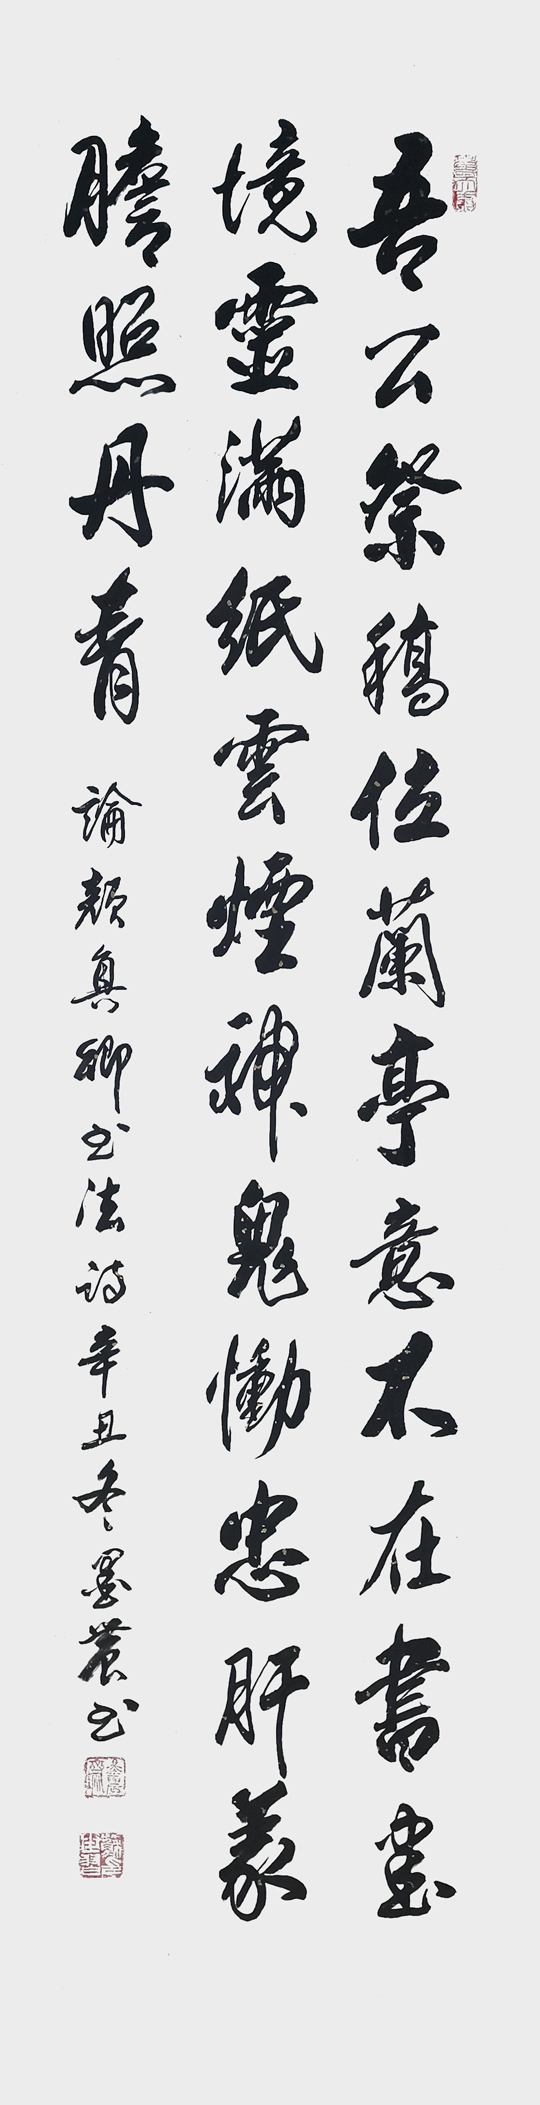 吾公祭稿位蘭亭意不在書畫
境靈滿紙雲煙神鬼慟忠肝義
膽照丹青
論顏真卿書法詩辛丑冬墨農書